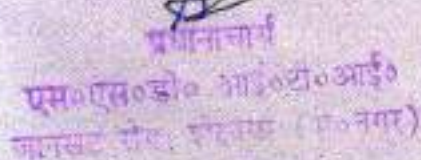 प्रधानाचार्य
एस०एस०डी० आई०टी०आई०
जानसठ रोड, (मु०नगर)